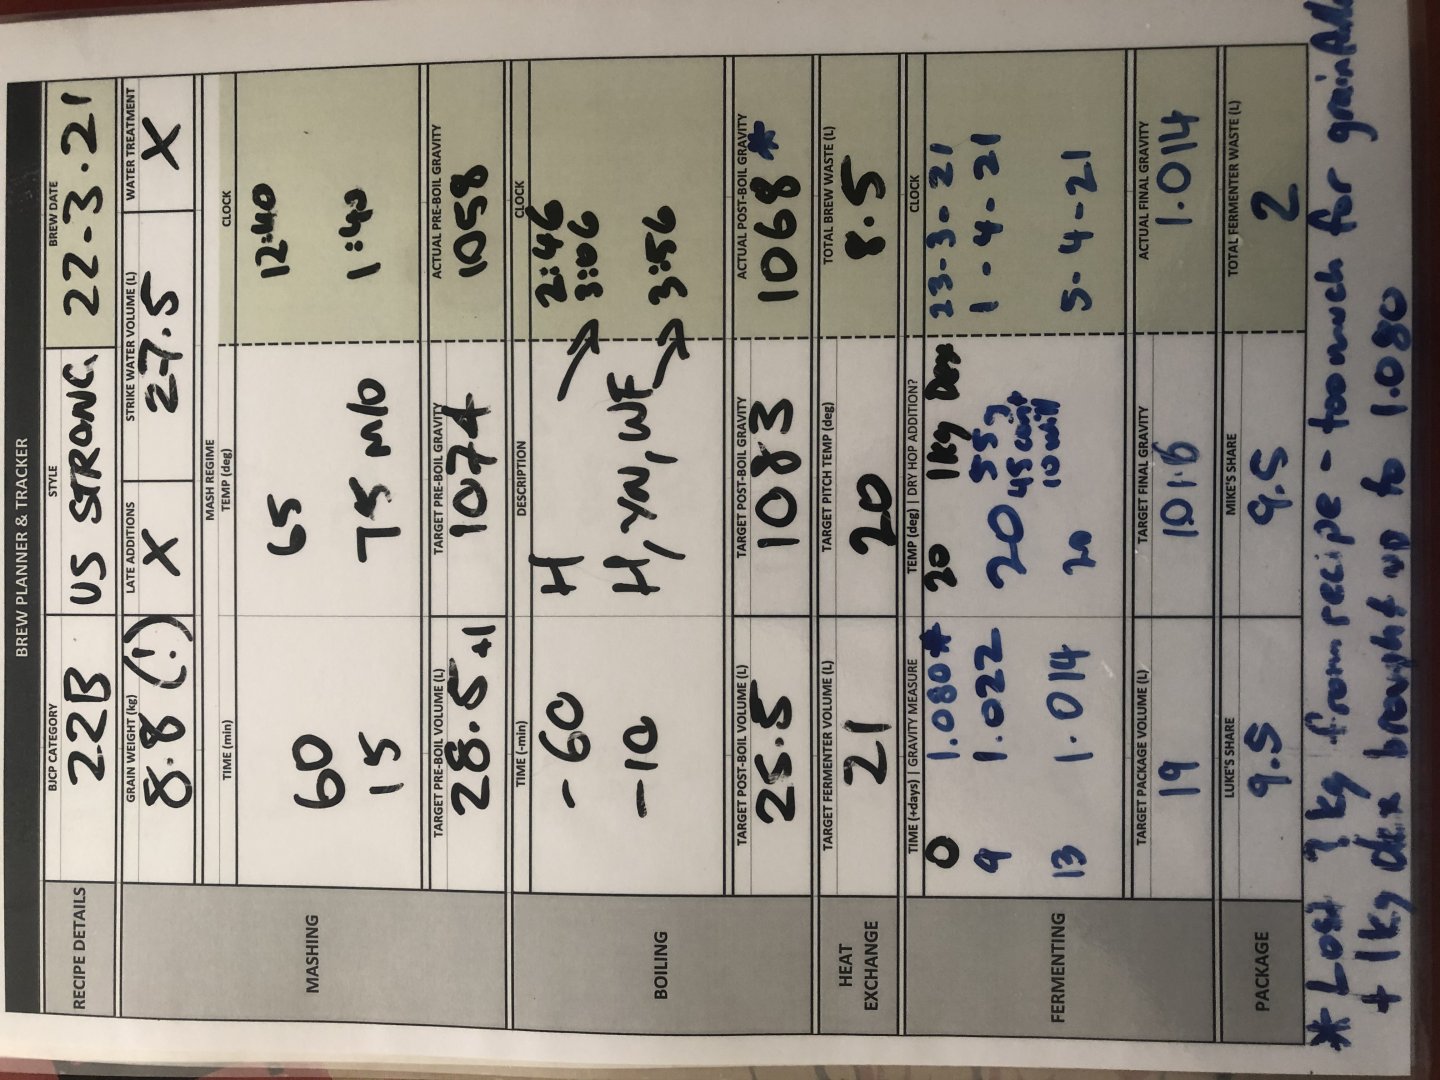 BREW PLANNER & TRACKER
RECIPE DETAILS
BJCP CATEGORY STYLE BREW DATE
22B US STRONG 22-3-21
MASHING
GRAIN WEIGHT (kg) LATE ADDITIONS STRIKE WATER VOLUME (L) WATER TREATMENT
8.8 (!) X 27.5 X
MASH REGIME
TIME (min) TEMP (deg) CLOCK
60 65 12:40
15 75 M/O 1:40
TARGET PRE-BOIL VOLUME (L) TARGET PRE-BOIL GRAVITY ACTUAL PRE-BOIL GRAVITY
28.5 +1 1074 1058
BOILING
TIME (-min) DESCRIPTION CLOCK
-60 H → 2:46
3:06
-10 H, YN, WF → 3:56
TARGET POST-BOIL VOLUME (L) TARGET POST-BOIL GRAVITY ACTUAL POST-BOIL GRAVITY
25.5 1083 1068*
HEAT EXCHANGE
TARGET FERMENTER VOLUME (L) TARGET PITCH TEMP (deg) TOTAL BREW WASTE (L)
21 20 8.5
FERMENTING
TIME (+days) | GRAVITY MEASURE TEMP (deg) | DRY HOP ADDITION? CLOCK
0 1.080* 20 1kg Dex 23-3-21
9 1.022 20 55g 1-4-21
45 cent
10 will
13 1.014 20 5-4-21
TARGET PACKAGE VOLUME (L) TARGET FINAL GRAVITY ACTUAL FINAL GRAVITY
19 101.6 1.014
PACKAGE
LUKE'S SHARE MIKE'S SHARE TOTAL FERMENTER WASTE (L)
9.5 9.5 2
* Lost ?kg from recipe - too much for
+ 1kg dex brought up to 1.080